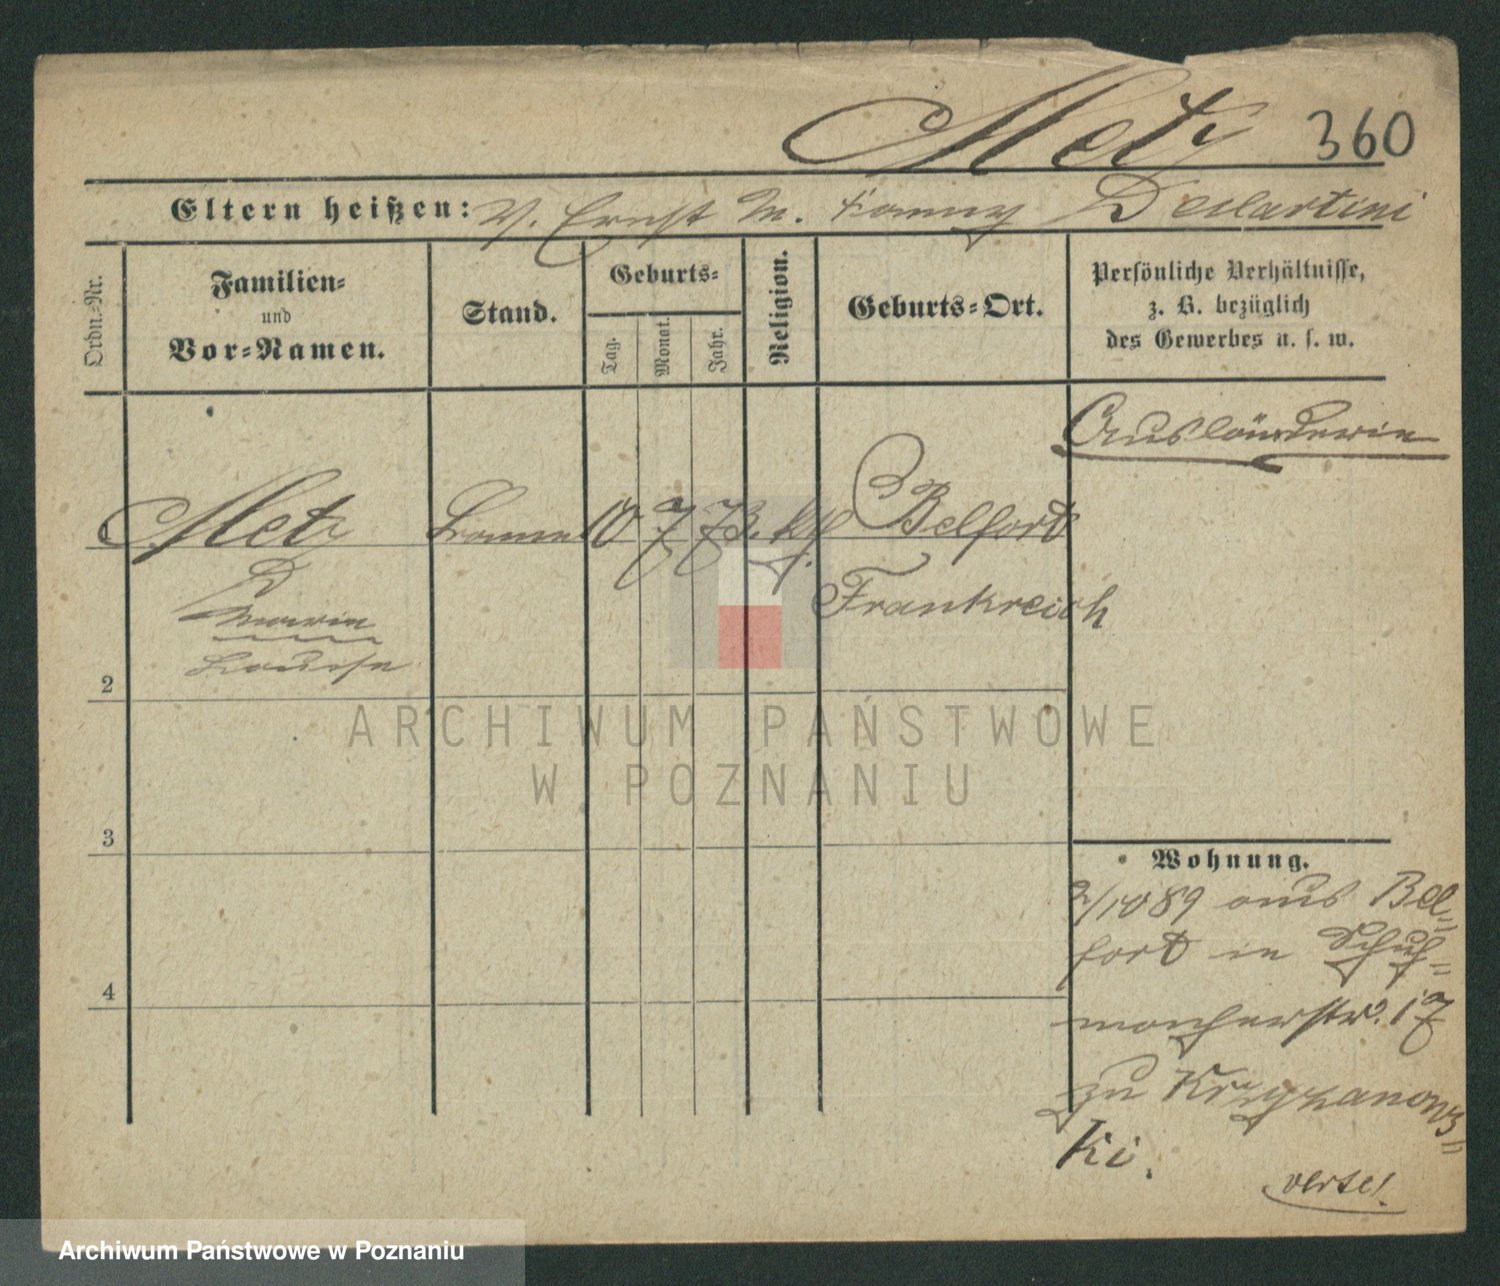 Metz 360
Eltern heißen: V. Ernst M. Fanny Deslartini
Ordn.-Nr.
Familien-
und
Vor-Namen.
Stand.
Geburts-
Tag.
Monat.
Jahr.
Religion.
Geburts-Ort.
Persönliche Verhältnisse,
z. B. bezüglich
des Gewerbes u. s. w.
Ausländerin
Metz 10 7 73. kth. Belfort
Frankreich
Marie
Louise
2
3
4
Wohnung.
2/10 89 aus Bel=
fort in Schuh=
macherstr. 17
zu Krzyzanows=
ki.
verte!
ARCHIWUM PAŃSTWOWE
W POZNANIU
Archiwum Państwowe w Poznaniu